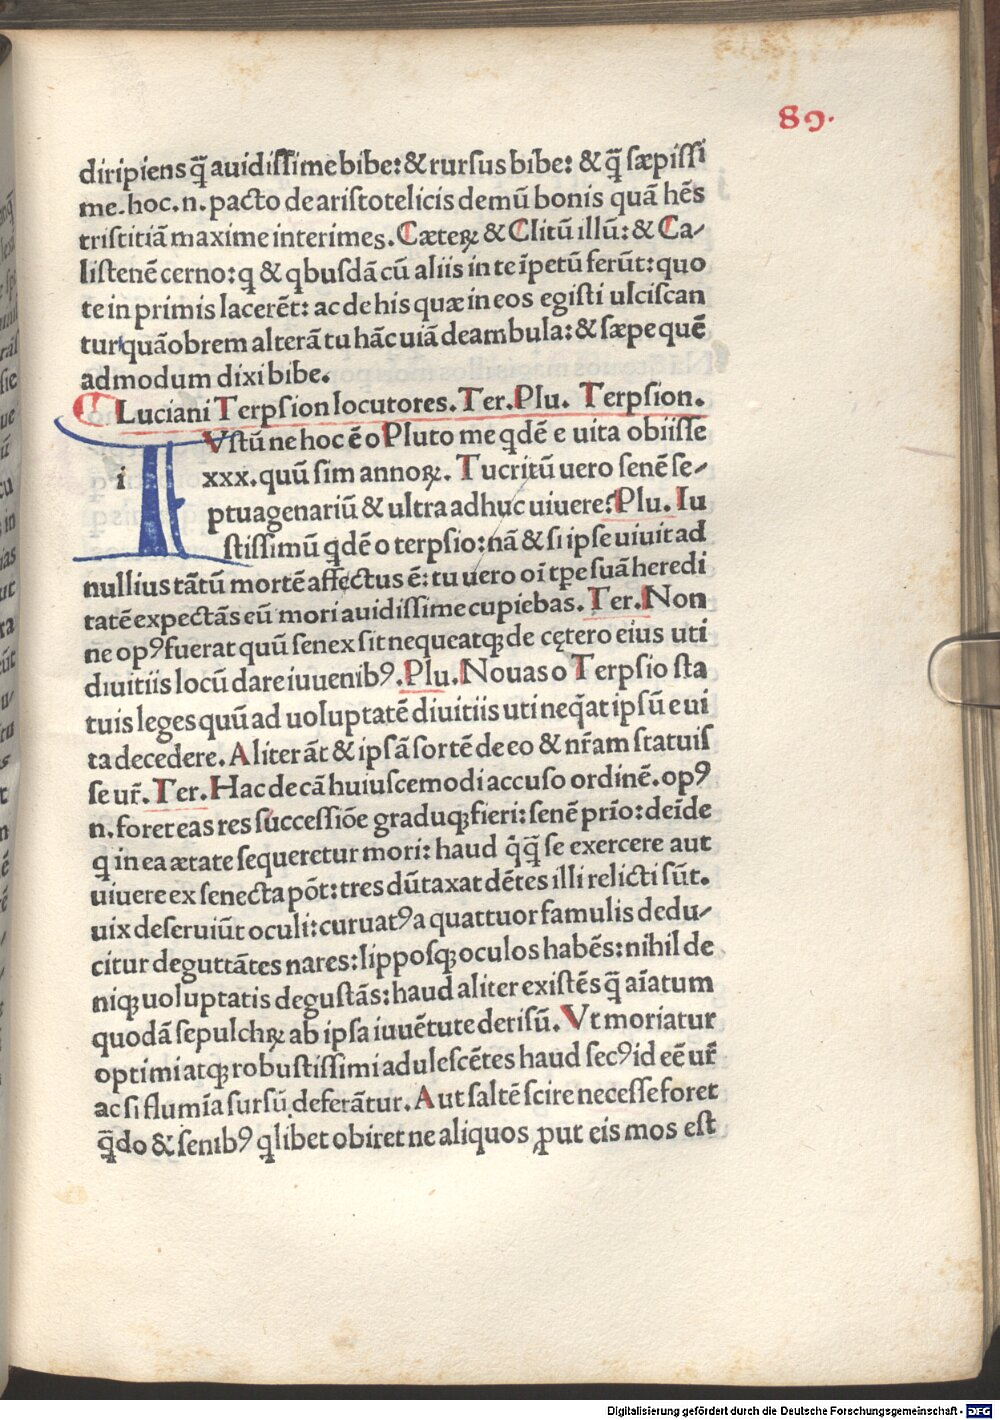 89.
diripiens q̄ auidiſſime bibe: & rurſus bibe: & q̄ ſæpiſſi
me. hoc. n. pacto de ariſtotelicis demū bonis quā hēs
triſtitiā maxime interimes. Cæteꝝ & Clitū illū: & Ca⸗
liſtenē cerno: q & qbuſdā cū aliis in te īpetū ferūt: quo
te in primis lacerēt: ac de his quæ in eos egiſti ulciſcan
tur quāobrem alterā tu hāc uiā deambula: & ſæpe quē
admodum dixi bibe.
Luciani Terpſion locutores. Ter. Plu. Terpſion.
Vſtū ne hoc ē o Pluto me qdē e uita obiiſſe
i xxx. quū ſim annoꝝ. Tu critū uero ſenē ſe⸗
ptuagenariū & ultra adhuc uiuere? Plu. Iu
ſtiſſimū qdē o terpſio: nā & ſi ipſe uiuit ad
nullius tātū mortē affectus ē: tu uero oī tꝑe ſuā heredi
tatē expectās eū mori auidiſſime cupiebas. Ter. Non
ne opꝰ fuerat quū ſenex ſit nequeatqꝫ de cętero eius uti
diuitiis locū dare iuuenibꝰ. Plu. Nouas o Terpſio ſta
tuis leges quū ad uoluptatē diuitiis uti neq̄at ipſū e ui
ta decedere. Aliter āt & ipſā ſortē de eo & nr̄am ſtatuiſ
ſe ur̄. Ter. Hac de cā huiuſcemodi accuſo ordinē. opꝰ
n. foret eas res ſucceſſiōe graduqꝫ fieri: ſenē prīo: deīde
q in ea ætate ſequeretur mori: haud q̄q̄ ſe exercere aut
uiuere ex ſenecta pōt: tres dūtaxat dētes illi relicti ſūt.
uix deſeruiūt oculi: curuatꝰ a quattuor famulis dedu⸗
citur deguttātes nares: lippoſqꝫ oculos habēs: nihil de
niqꝫ uoluptatis deguſtās: haud aliter exiſtēs q̄ aīatum
quodā ſepulchꝝ ab ipſa iuuētute deriſū. Vt moriatur
optimi atqꝫ robuſtiſſimi aduleſcētes haud ſecꝰ id eē ur̄
ac ſi flumīa ſurſū deferātur. Aut ſaltē ſcire neceſſe foret
q̄do & ſenibꝰ qlibet obiret ne aliquos ꝓut eis mos eſt
Digitalisierung gefördert durch die Deutsche Forschungsgemeinschaft - DFG